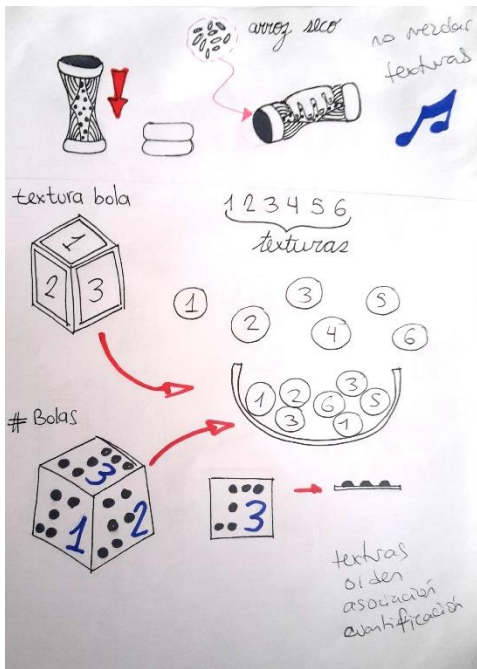 arroz seco
no mezclar
texturas
textura bola
1 2 3 4 5 6
texturas
1
2 3
1
2
3
4
5
6
# Bolas
1 2 6 3 5
3 1
3
1 2
3
texturas
orden
asociación
cuantificación